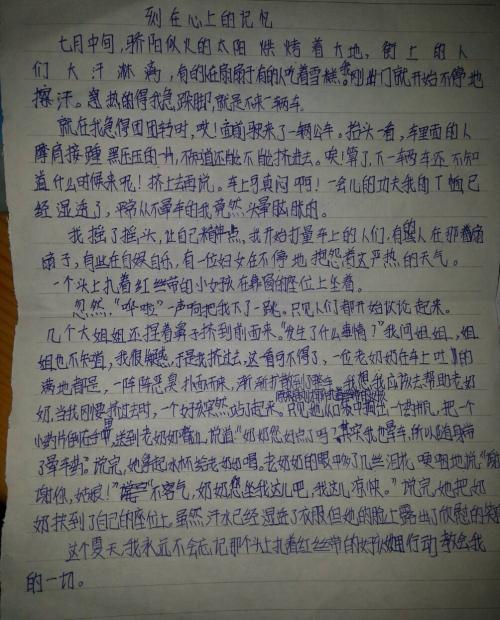 刻在心上的记忆
七月中间，骄阳似火的太阳烘烤着大地，街上的人
们大汗淋漓，有的在扇扇子有的吃着雪糕。我刚出门就开始不停地
擦汗。急热的得我急跺脚，就是不来一辆车。
就在我急得团团转时，唉！面前驶来了一辆公车。抬头一看，车里面的人
摩肩接踵黑压压的一片，不知道还能不能挤进去。唉！算了，下一辆车还不知
道什么时候来呢！挤上去再说。车上可真闷啊！一会儿的功夫我的T恤已
经湿透了，平常从不晕车的我竟然头晕脑胀的。
我摇了摇头，让自己精神点，我开始打量车上的人们，有的人在那着扇
扇子，有些在自娱自乐，有一位妇女在不停地抱怨着这严热的天气。
一个头上扎着红丝带的小女孩在靠窗的座位上坐着。
忽然，“哗啦”一声响把我下一跳。只见人们都开始议论起来。
几个大姐姐还捏着鼻子挤到前面来。“发生了什么事情？”我问姐姐，姐
姐也不知道，我很疑惑，于是我挤过去，这一看可不得了，一位老奶奶在车上吐的
满地都是，一阵阵恶臭扑面而来，渐渐扩散到了整车。我想我应该去帮助老奶
奶，当我刚要挤过去时，一个女孩突然站了起来。只见她从口袋中掏出一个药瓶，把一个
小药片倒在手里，送到老奶奶嘴边，说道：“奶奶您好点了吗？其实我也晕车，所以随身带
了晕车药。”说完，她拿起水杯给老奶奶喝。老奶奶的眼中含了几丝泪花哽咽地说：“谢
谢你，姑娘！”“不客气，奶奶您坐我这儿吧，我这儿凉快。”说完她把奶
奶扶到了自己的座位上。虽然，汗水已经湿透了衣服但她的脸上露出了欣慰的笑
这个夏天，我永远不会忘记那个头上扎着红丝带的女孩，她用行动教会我
的一切。